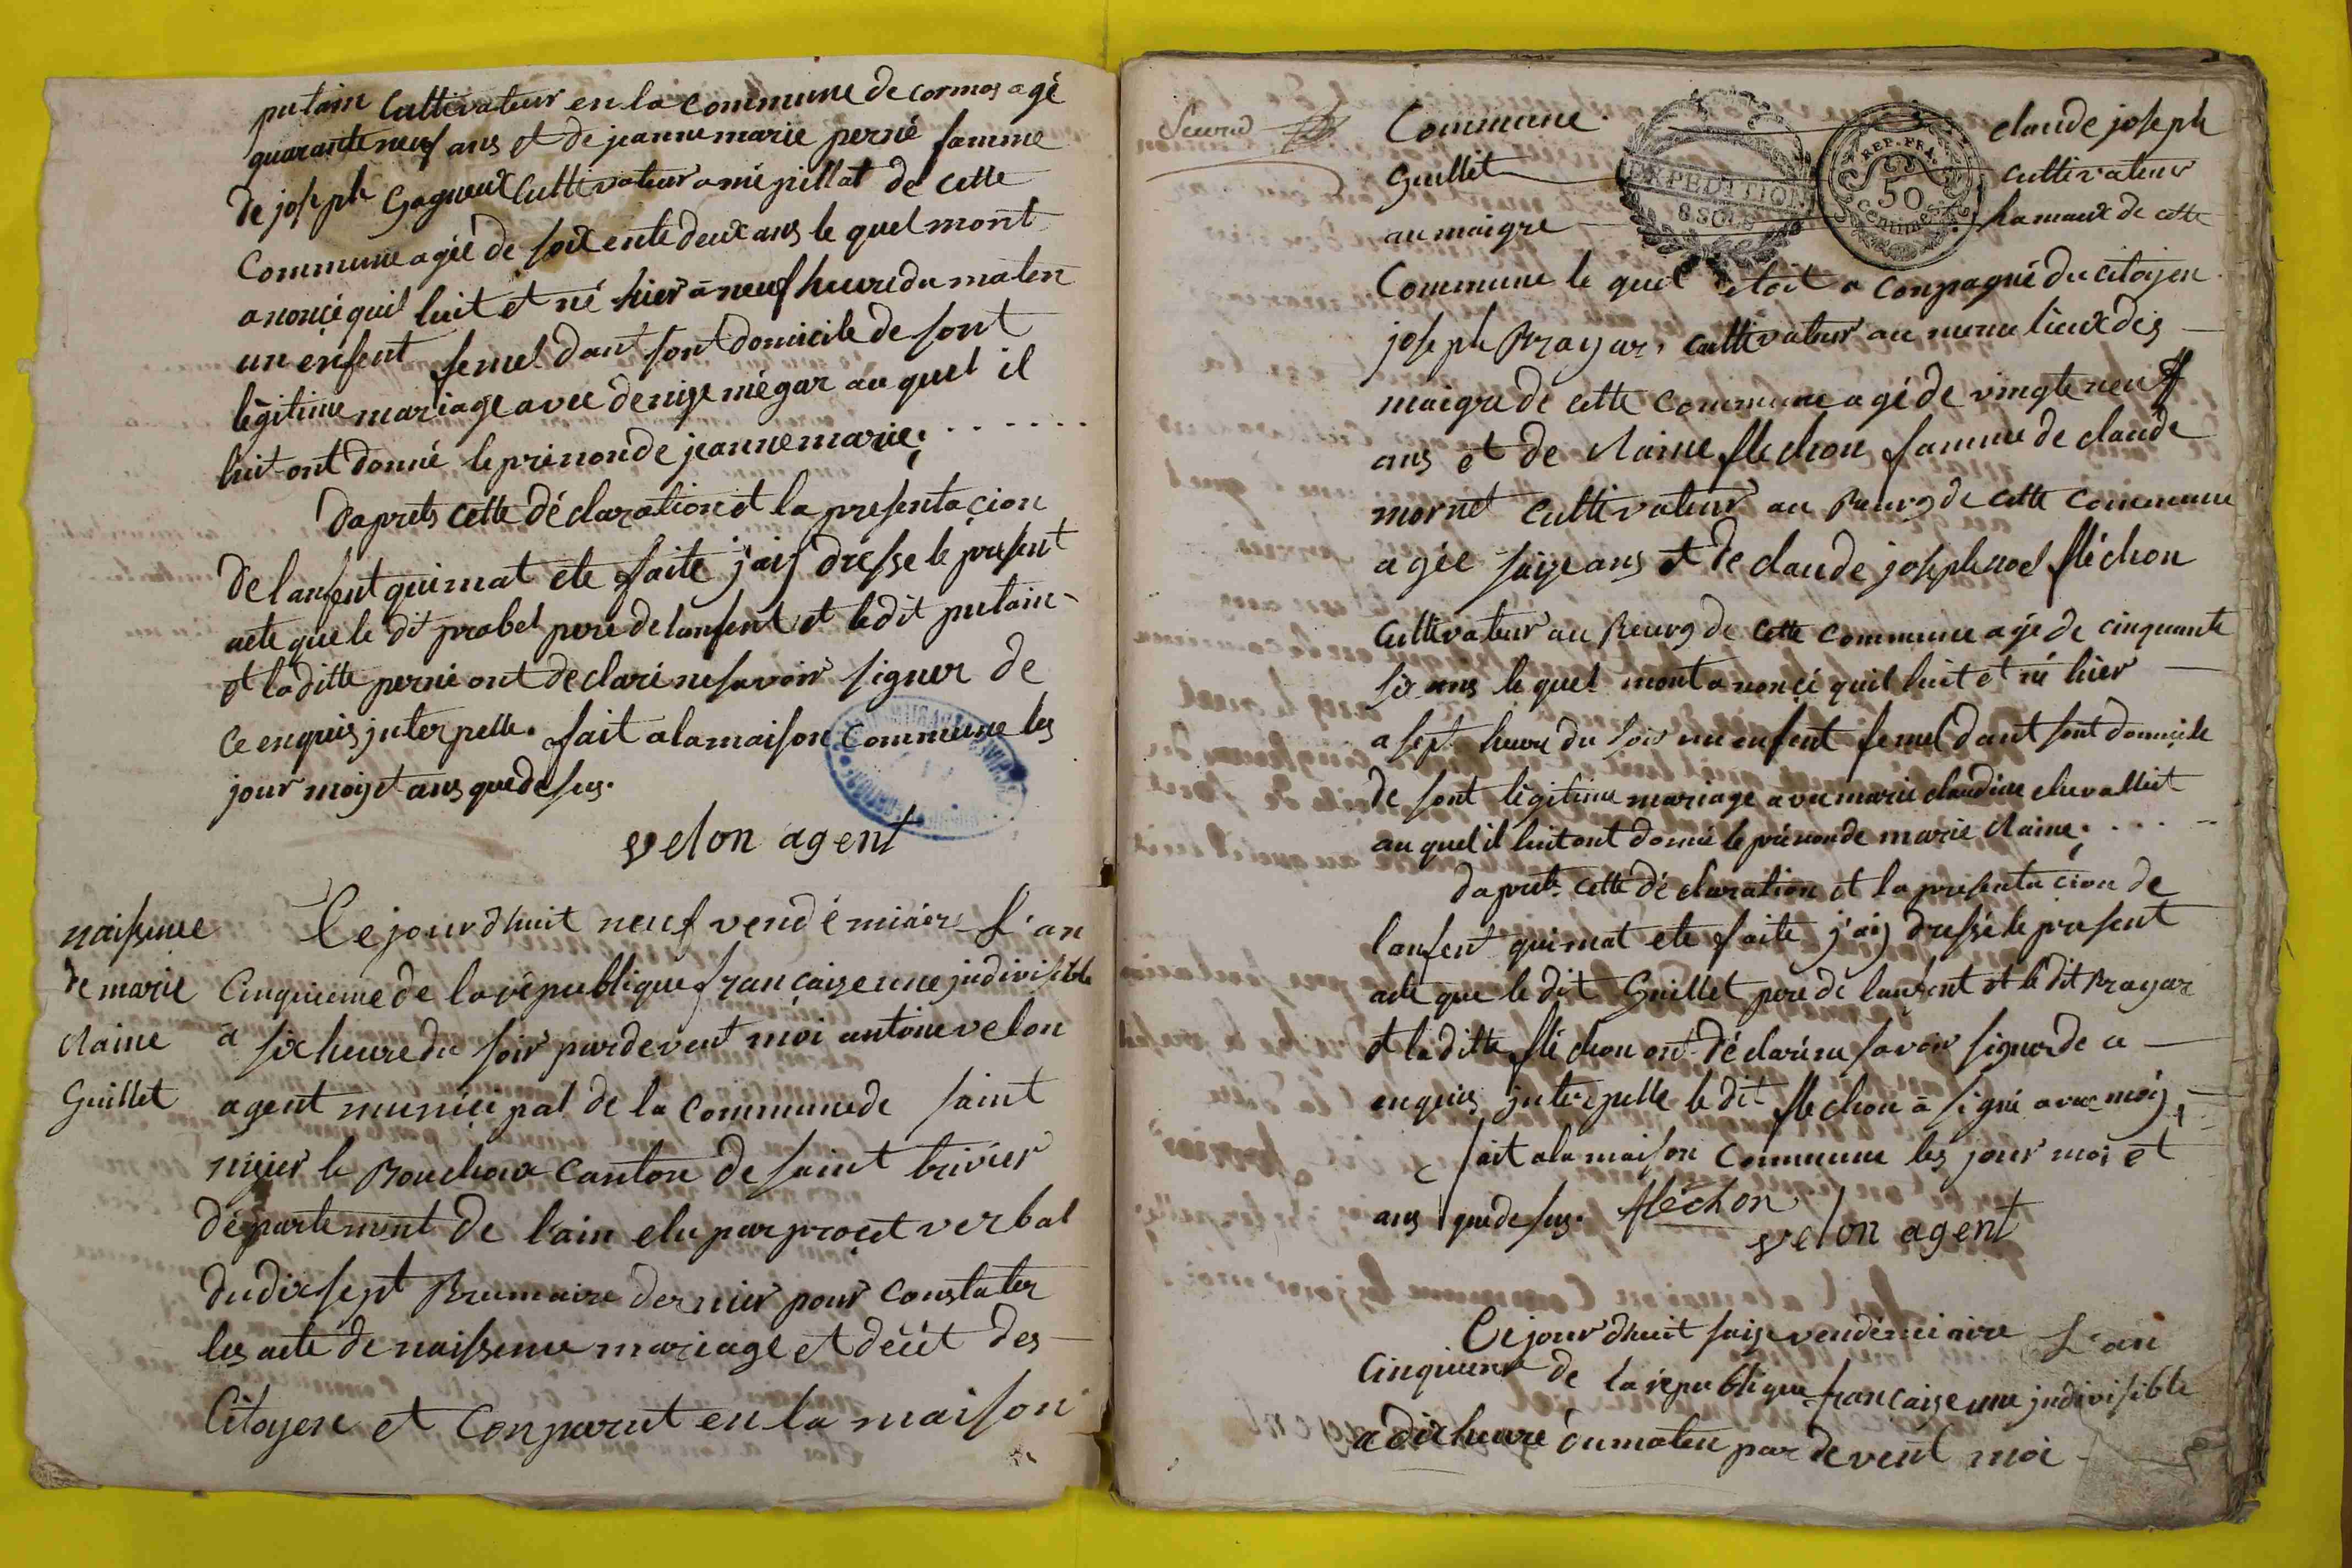 putain Cultivateur en la Commune de cormos agé
quarante neuf ans et de jeanne marie perné famme
de joseph Gagneux Cultivateur a mépillat de cette
Commune agéé de soixente deux ans le quel mont
anoncé quil luit et né hier a neuf heure du maten
un enfent femel dant sont domicile de sont
légitime mariage avec denise mégar au quel il
luit ont donné le prénon de jeanne marie. . . . . . .
daprets cette déclaration et la presentacion
de lanfent qui mat ete faite j'aij dresse le present
acte que le dit probet pere de lanfent et le dit putain
et la ditte perné ont declaré ne savoir signer de
ce enquis jnterpelle. fait a la maison Commune les
jour mois et ans que desus.
velon agent
naissence
de marie
claine
Guillet
Ce jour d'huit neuf vendémiair L'an
Cinquieme de la république française une jndivisible
à six heure du soir pardevent moi antoine velon
agent municipal de la Commune de saint
nizier le Bouchoux Canton de saint trivier
département de l'ain elu par procet verbal
du dix sept Brumaire dernier pour Constater
les acte de naissence mariage et décét des
Citoyen et Conparut en la maison
Commune. claude joseph
Guillet cultivateur
EXPEDITION
8 SOLS
REP. FRA.
50
centimes
au maigre hamaux de cette
Commune le quel etoit a Conpagné du citoyen
joseph Brayar, cultivateur au meme lieux des
maigre de cette Commune agé de vingte neuf
ans et de claine flechon famme de claude
mornet Cultivateur au Bourg de cette Commune
agéé saize ans et de claude joseph noel fléchon
Cultivateur au Bourg de cette Commune agé de cinquante
six ans le quel mont anoncé quil luit et né hier
a sept heure du soir un enfent femel dant sont domicile
de sont légitime mariage avec marie claudine chevallit
au quel il luit ont donné le prénon de marie claine. . . . .
daprets cette déclaration et la presentacion de
lanfent qui mat ete faite j'aij dressé le present
acte que le dit Guillet pere de lanfent et le dit Brayar
et la ditte fléchon ont déclaré ne savoir signer de ce
enquis jnterpelle le dit flechon à signé avec moij
fait a la maison Commune les jour mois et
ans que desus. fléchon
velon agent
Ce jour dhuit saize vendémiaire L'an
Cinquieme de la république française une jndivisible
a dix heure du maten par devent moi